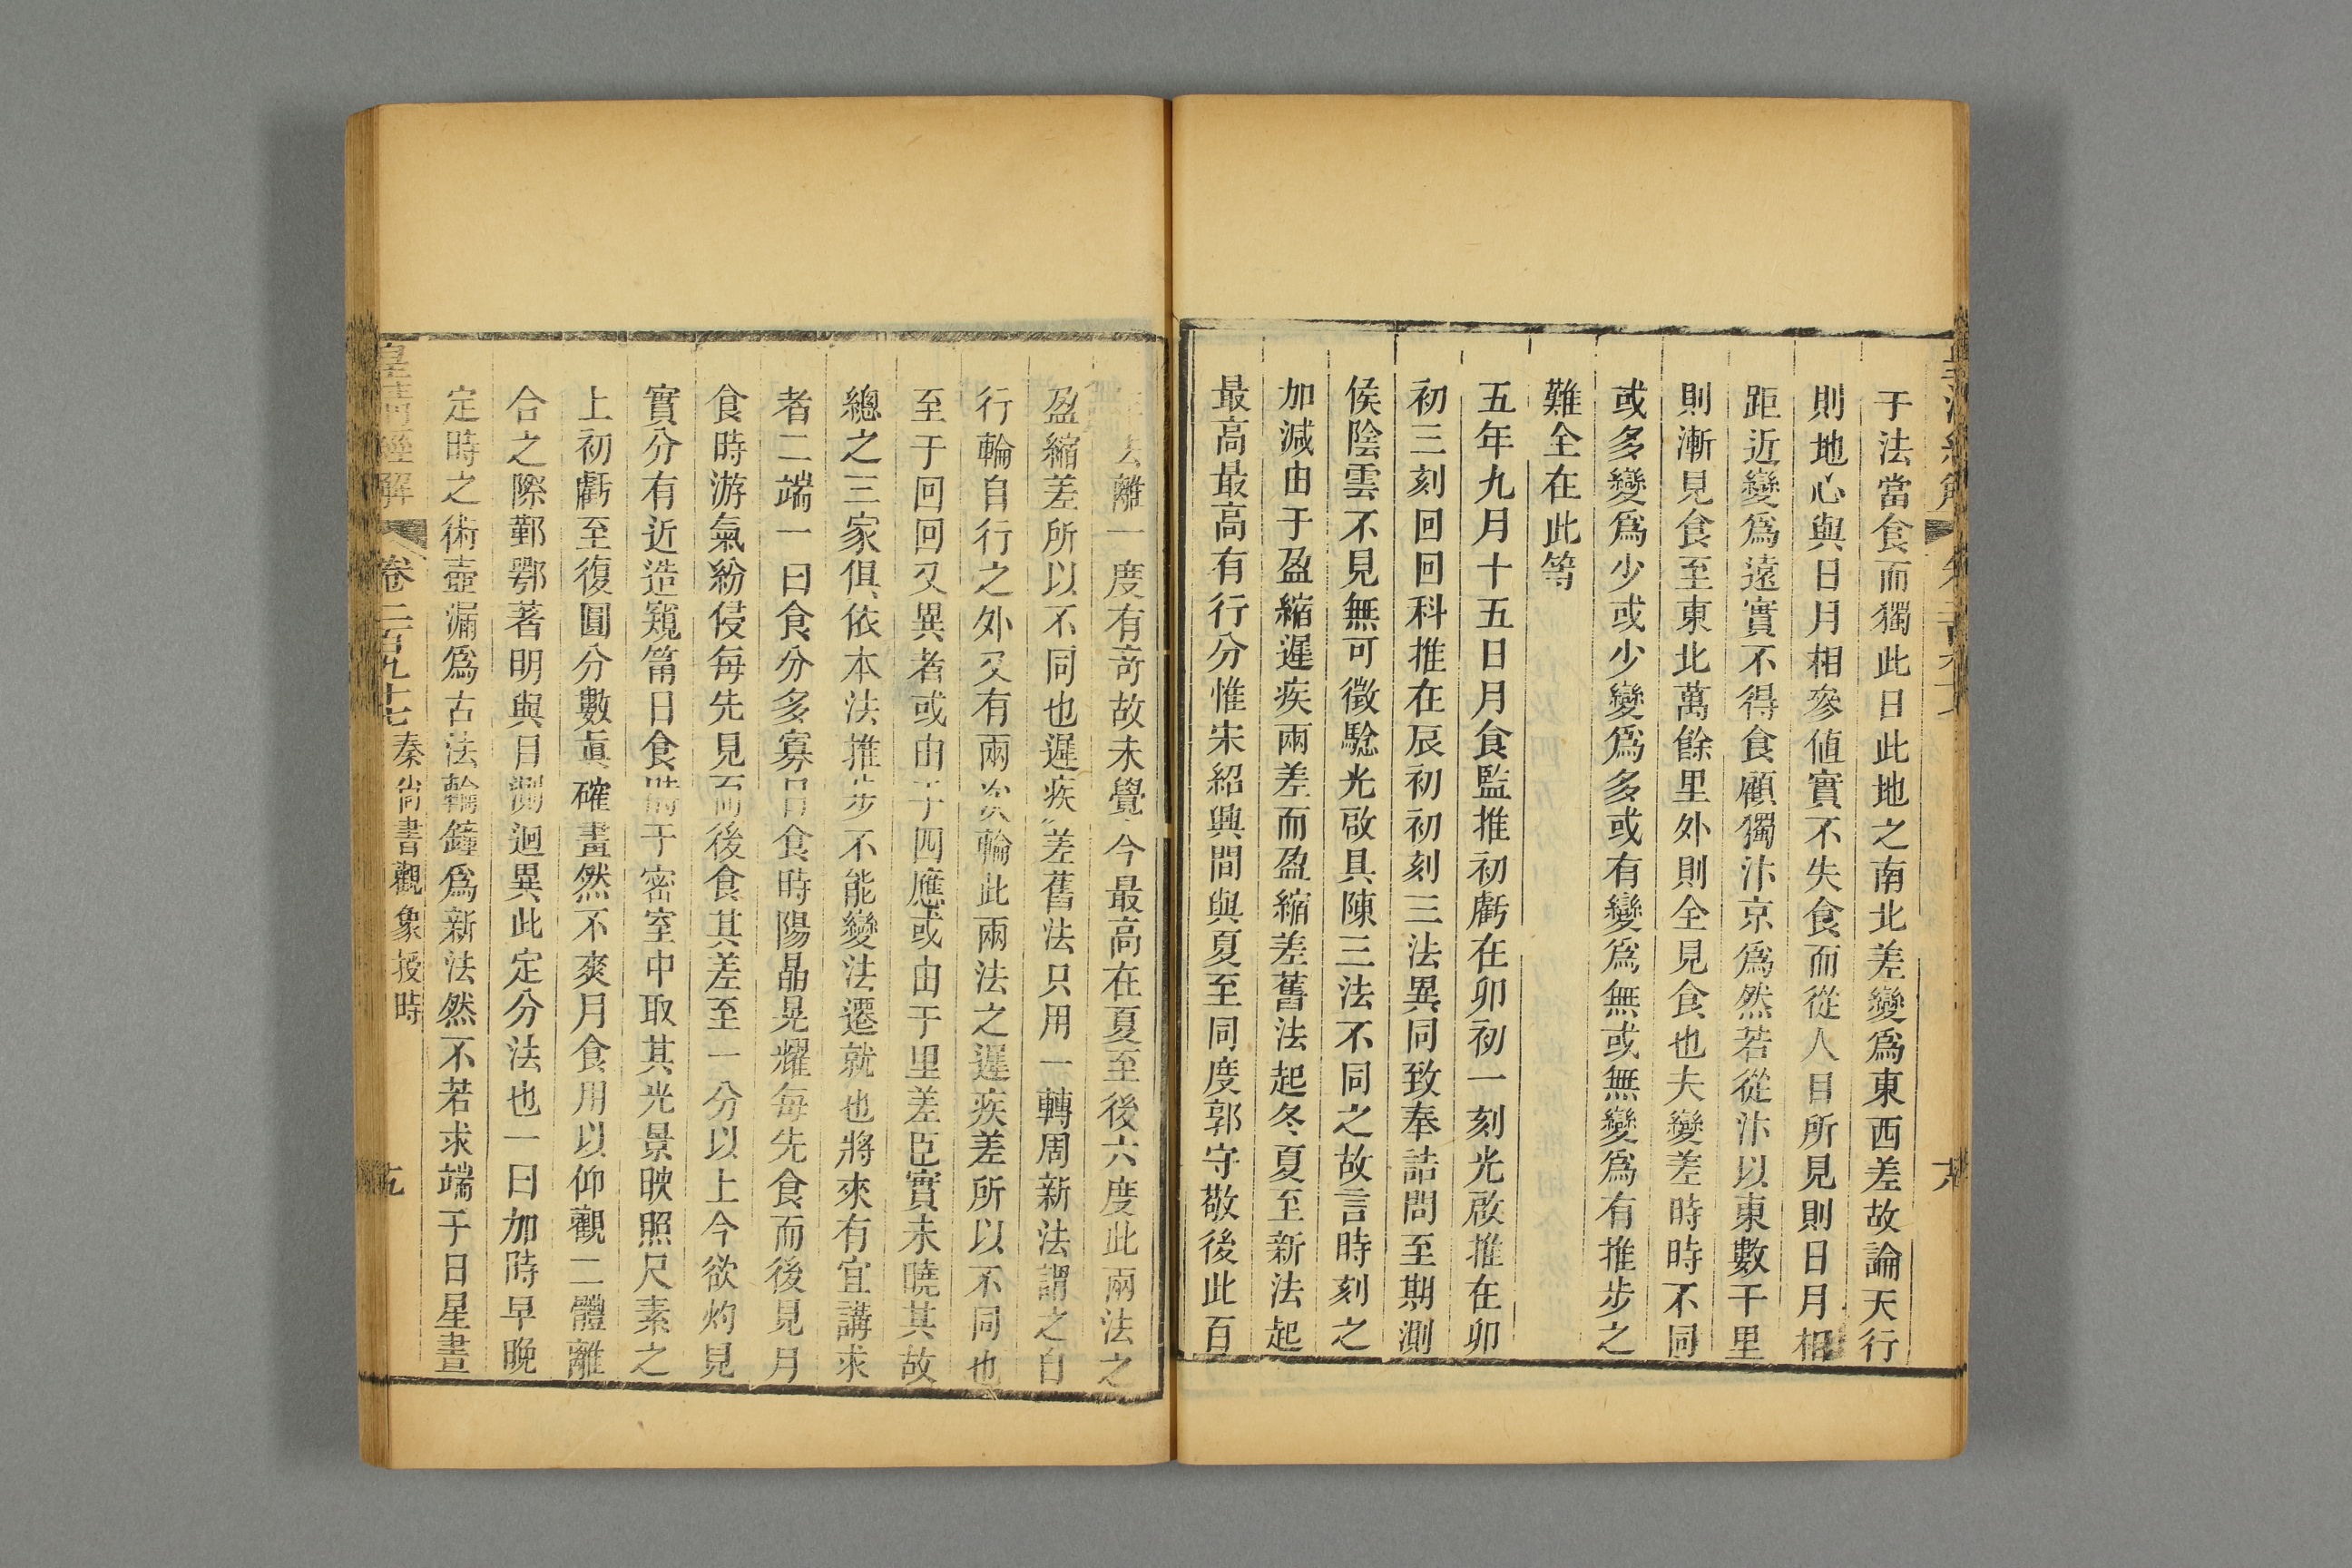 于法當食而獨此日此地之南北差變爲東西差故論天行
則地心與日月相參值實不失食而從人目所見則日月相
距近變爲遠實不得食顧獨汴京爲然若從汴以東數千里
則漸見食至東北萬餘里外則全見食也夫變差時時不同
或多變爲少或少變爲多或有變爲無或無變爲有推步之
難全在此等
五年九月十五日月食監推初虧在卯初一刻光啟推在卯
初三刻回回科推在辰初初刻三法異同致奉詰問至期測
侯陰雲不見無可徵驗光啟具陳三法不同之故言時刻之
加減由于盈縮遲疾兩差而盈縮差舊法起冬夏至新法起
最高最高有行分惟宋紹興間與夏至同度郭守敬後此百
離一度有奇故未覺今最高在夏至後六度此兩法之
盈縮差所以不同也遲疾差舊法只用一轉周新法謂之自
行輪自行之外又有兩次輪此兩法之遲疾差所以不同也
至于回回又異者或由于四應或由于里差臣實未曉其故
總之三家俱依本法推步不能變法遷就也將來有宜講求
者二端一曰食分多寡日食時陽晶晃耀每先食而後見月
食時游氣紛侵每先見而後食其差至一分以上今欲灼見
實分有近造窺筩日食時于密室中取其光景映照尺素之
上初虧至復圓分數眞確畫然不爽月食用以仰觀二體離
合之際鄞鄂著明與目測迥異此定分法也一曰加時早晚
定時之術壺漏爲古法輪鐘爲新法然不若求端于日星晝
皇清經解 卷二百九十七 秦尚書觀象授時 九